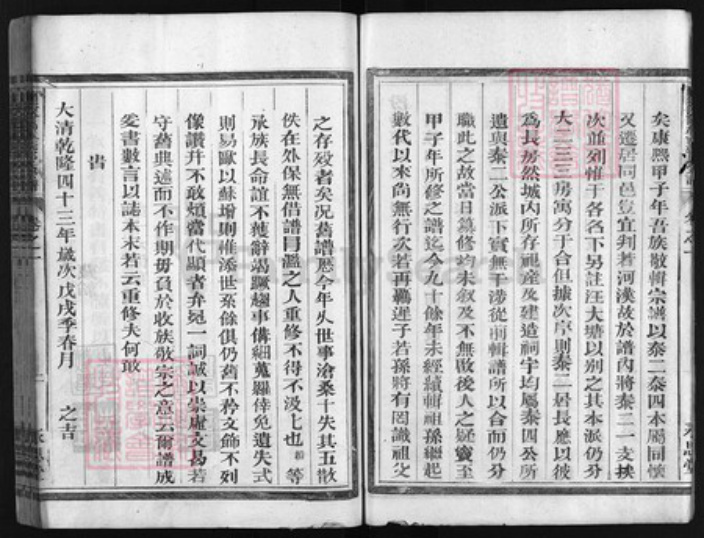 矣康熙甲子年吾族敬輯宗譜以泰二泰四本屬同懷
又遷居同邑豈宜判若河漢故於譜內將泰二一支挨
次並列惟于各名下另註汪大塘以別之其本派仍分
大二三三房寓分于合但據次序則泰二居長應以彼
為長房然城內所存祀產及建造祠宇均屬泰四公所
遺與泰二公派下實無干涉從前輯譜所以合而仍分
職此之故當日纂修均未敘及不無啟後人之疑竇至
甲子年所修之譜迄今九十餘年未經續輯祖孫繼起
數代以來尚無行次若再聽遲子若孫將有罔識祖父
之存歿者矣况舊譜歷今年久世事滄桑十失其五散
佚在外保無借譜冒濫之人重修不得不汲七也 等
承族長命誼不獲辭竭蹶趨事備細蒐羅倖免遺失式
則易歐以蘇增則惟添世系餘俱仍舊不矜文飾不列
像讚并不敢煩當代顯者弁冕一詞誠以崇虛文曷若
守舊典述而不作期毋負於收族敬宗之意云爾譜成
爰書數言以誌本末若云重修夫何敢
旹
大清乾隆四十三年歲次戊戌季春月 之吉
卷之一